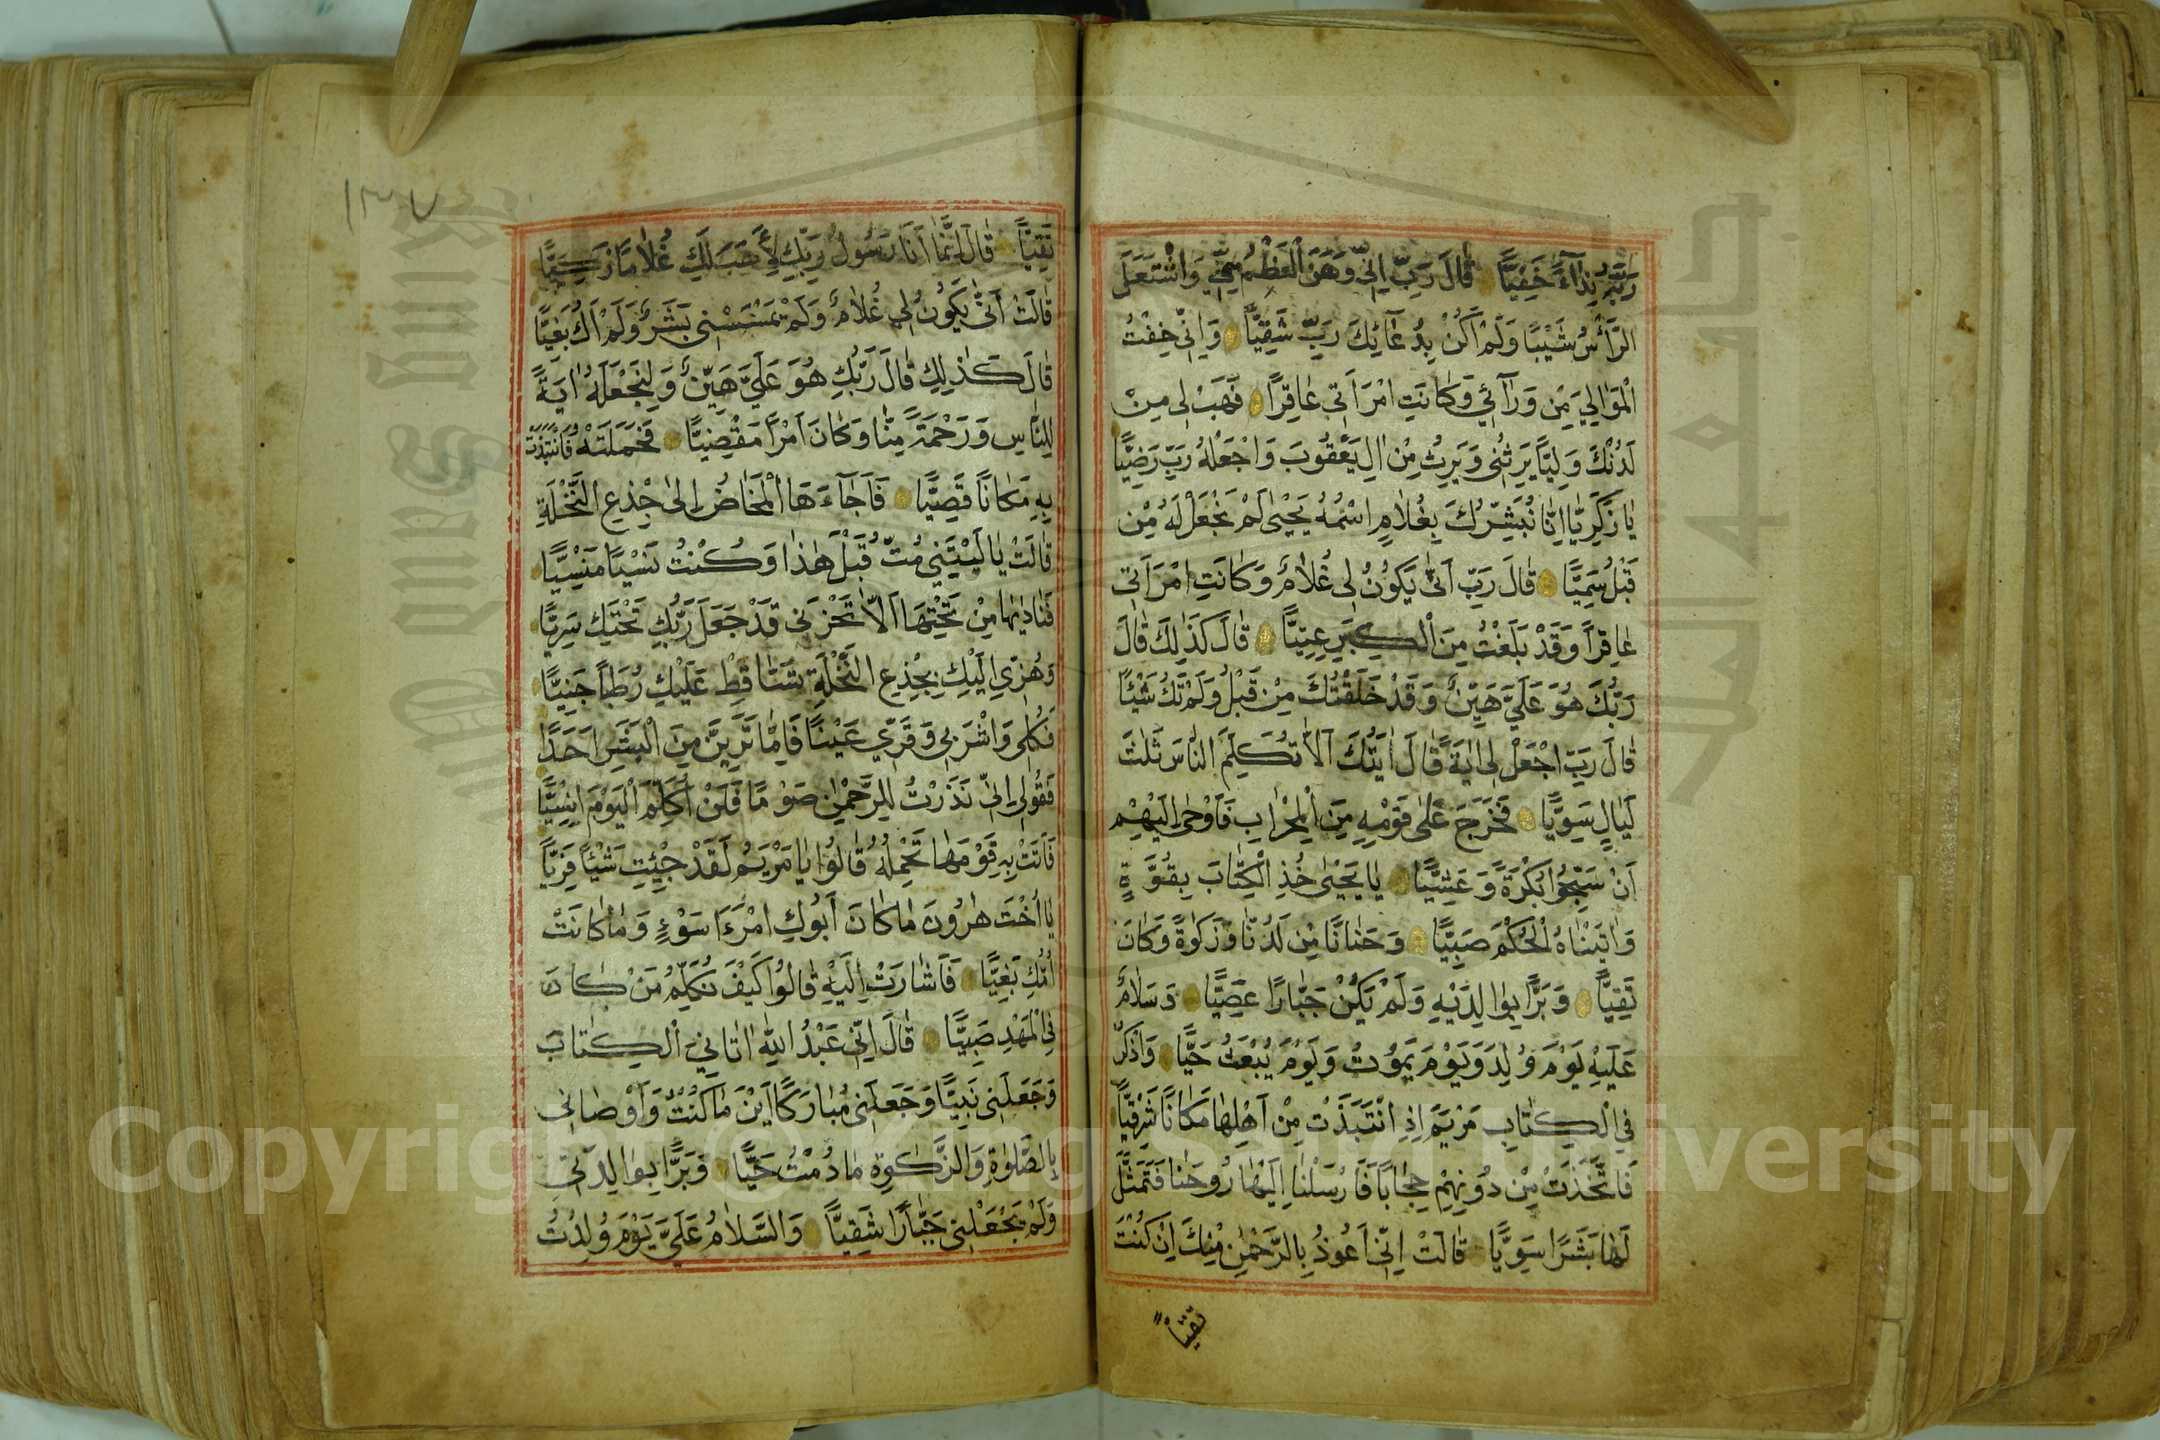 رَبَّهُ نِدَآءً خَفِيًّا قَالَ رَبِّ اِنّ۪ي وَهَنَ الْعَظْمُ مِنّ۪ي وَاشْتَعَلَ
الرَّاْسُ شَيْبًا وَلَمْ اَكُنْ بِدُعَآئِكَ رَبِّ شَقِيًّا وَاِنّ۪ي خِفْتُ
الْمَوَالِيَ مِنْ وَرَآئ۪ي وَكَانَتِ امْرَاَت۪ي عَاقِرًا فَهَبْ ل۪ي مِنْ
لَدُنْكَ وَلِيًّا يَرِثُن۪ي وَيَرِثُ مِنْ اٰلِ يَعْقُوبَ وَاجْعَلْهُ رَبِّ رَضِيًّا
يَا زَكَرِيَّا اِنَّا نُبَشِّرُكَ بِغُلَامٍ اسْمُهُ يَحْيٰى لَمْ نَجْعَلْ لَهُ مِنْ
قَبْلُ سَمِيًّا قَالَ رَبِّ اَنّٰى يَكُونُ ل۪ي غُلَامٌ وَكَانَتِ امْرَاَت۪ي
عَاقِرًا وَقَدْ بَلَغْتُ مِنَ الْكِبَرِ عِتِيًّا قَالَ كَذٰلِكَ قَالَ
رَبُّكَ هُوَ عَلَيَّ هَيِّنٌ وَقَدْ خَلَقْتُكَ مِنْ قَبْلُ وَلَمْ تَكُ شَيْئًا
قَالَ رَبِّ اجْعَلْ ل۪ي اٰيَةً قَالَ اٰيَتُكَ اَلَّا تُكَلِّمَ النَّاسَ ثَلٰثَ
لَيَالٍ سَوِيًّا فَخَرَجَ عَلٰى قَوْمِهِ مِنَ الْمِحْرَابِ فَاَوْحٰى اِلَيْهِمْ
اَنْ سَبِّحُوا بُكْرَةً وَعَشِيًّا يَا يَحْيٰى خُذِ الْكِتَابَ بِقُوَّةٍ
وَاٰتَيْنَاهُ الْحُكْمَ صَبِيًّا وَحَنَانًا مِنْ لَدُنَّا وَزَكٰوةً وَكَانَ
تَقِيًّا وَبَرًّا بِوَالِدَيْهِ وَلَمْ يَكُنْ جَبَّارًا عَصِيًّا وَسَلَامٌ
عَلَيْهِ يَوْمَ وُلِدَ وَيَوْمَ يَمُوتُ وَيَوْمَ يُبْعَثُ حَيًّا وَاذْكُرْ
فِي الْكِتَابِ مَرْيَمَ اِذِ انْتَبَذَتْ مِنْ اَهْلِهَا مَكَانًا شَرْقِيًّا
فَاتَّخَذَتْ مِنْ دُونِهِمْ حِجَابًا فَاَرْسَلْنَا اِلَيْهَا رُوحَنَا فَتَمَثَّلَ
لَهَا بَشَرًا سَوِيًّا قَالَتْ اِنّ۪ي اَعُوذُ بِالرَّحْمٰنِ مِنْكَ اِنْ كُنْتَ
تقيًّا
١٣٧
تَقِيًّا قَالَ اِنَّمَا اَنَا رَسُولُ رَبِّكِ لِاَهَبَ لَكِ غُلَامًا زَكِيًّا
قَالَتْ اَنّٰى يَكُونُ ل۪ي غُلَامٌ وَلَمْ يَمْسَسْن۪ي بَشَرٌ وَلَمْ اَكُ بَغِيًّا
قَالَ كَذٰلِكِ قَالَ رَبُّكِ هُوَ عَلَيَّ هَيِّنٌ وَلِنَجْعَلَهُ اٰيَةً
لِلنَّاسِ وَرَحْمَةً مِنَّا وَكَانَ اَمْرًا مَقْضِيًّا فَحَمَلَتْهُ فَانْتَبَذَتْ
بِهِ مَكَانًا قَصِيًّا فَاَجَآءَهَا الْمَخَاضُ اِلٰى جِذْعِ النَّخْلَةِ
قَالَتْ يَا لَيْتَن۪ي مُتُّ قَبْلَ هٰذَا وَكُنْتُ نَسْيًا مَنْسِيًّا
فَنَادٰيهَا مِنْ تَحْتِهَا اَلَّا تَحْزَن۪ي قَدْ جَعَلَ رَبُّكِ تَحْتَكِ سَرِيًّا
وَهُزّ۪ي اِلَيْكِ بِجِذْعِ النَّخْلَةِ تُسَاقِطْ عَلَيْكِ رُطَبًا جَنِيًّا
فَكُل۪ي وَاشْرَب۪ي وَقَرّ۪ي عَيْنًا فَاِمَّا تَرَيِنَّ مِنَ الْبَشَرِ اَحَدًا
فَقُول۪ي اِنّ۪ي نَذَرْتُ لِلرَّحْمٰنِ صَوْمًا فَلَنْ اُكَلِّمَ الْيَوْمَ اِنْسِيًّا
فَاَتَتْ بِهِ قَوْمَهَا تَحْمِلُهُ قَالُوا يَا مَرْيَمُ لَقَدْ جِئْتِ شَيْئًا فَرِيًّا
يَا اُخْتَ هٰرُونَ مَا كَانَ اَبُوكِ امْرَاَ سَوْءٍ وَمَا كَانَتْ
اُمُّكِ بَغِيًّا فَاَشَارَتْ اِلَيْهِ قَالُوا كَيْفَ نُكَلِّمُ مَنْ كَانَ
فِي الْمَهْدِ صَبِيًّا قَالَ اِنّ۪ي عَبْدُ اللّٰهِ اٰتَانِيَ الْكِتَابَ
وَجَعَلَن۪ي نَبِيًّا وَجَعَلَن۪ي مُبَارَكًا اَيْنَ مَا كُنْتُ وَاَوْصَان۪ي
بِالصَّلٰوةِ وَالزَّكٰوةِ مَا دُمْتُ حَيًّا وَبَرًّا بِوَالِدَت۪ي
وَلَمْ يَجْعَلْن۪ي جَبَّارًا شَقِيًّا وَالسَّلَامُ عَلَيَّ يَوْمَ وُلِدْتُ
Copyright © King Saud University